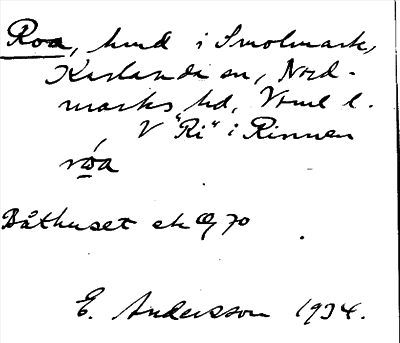 Roa, lund i Smolmark,
Karlanda sn, Nord-
marks hd, Vrml l.
V "Ri" i Rinnen
róa
Båthuset ek Q 70
E. Andersson 1934.